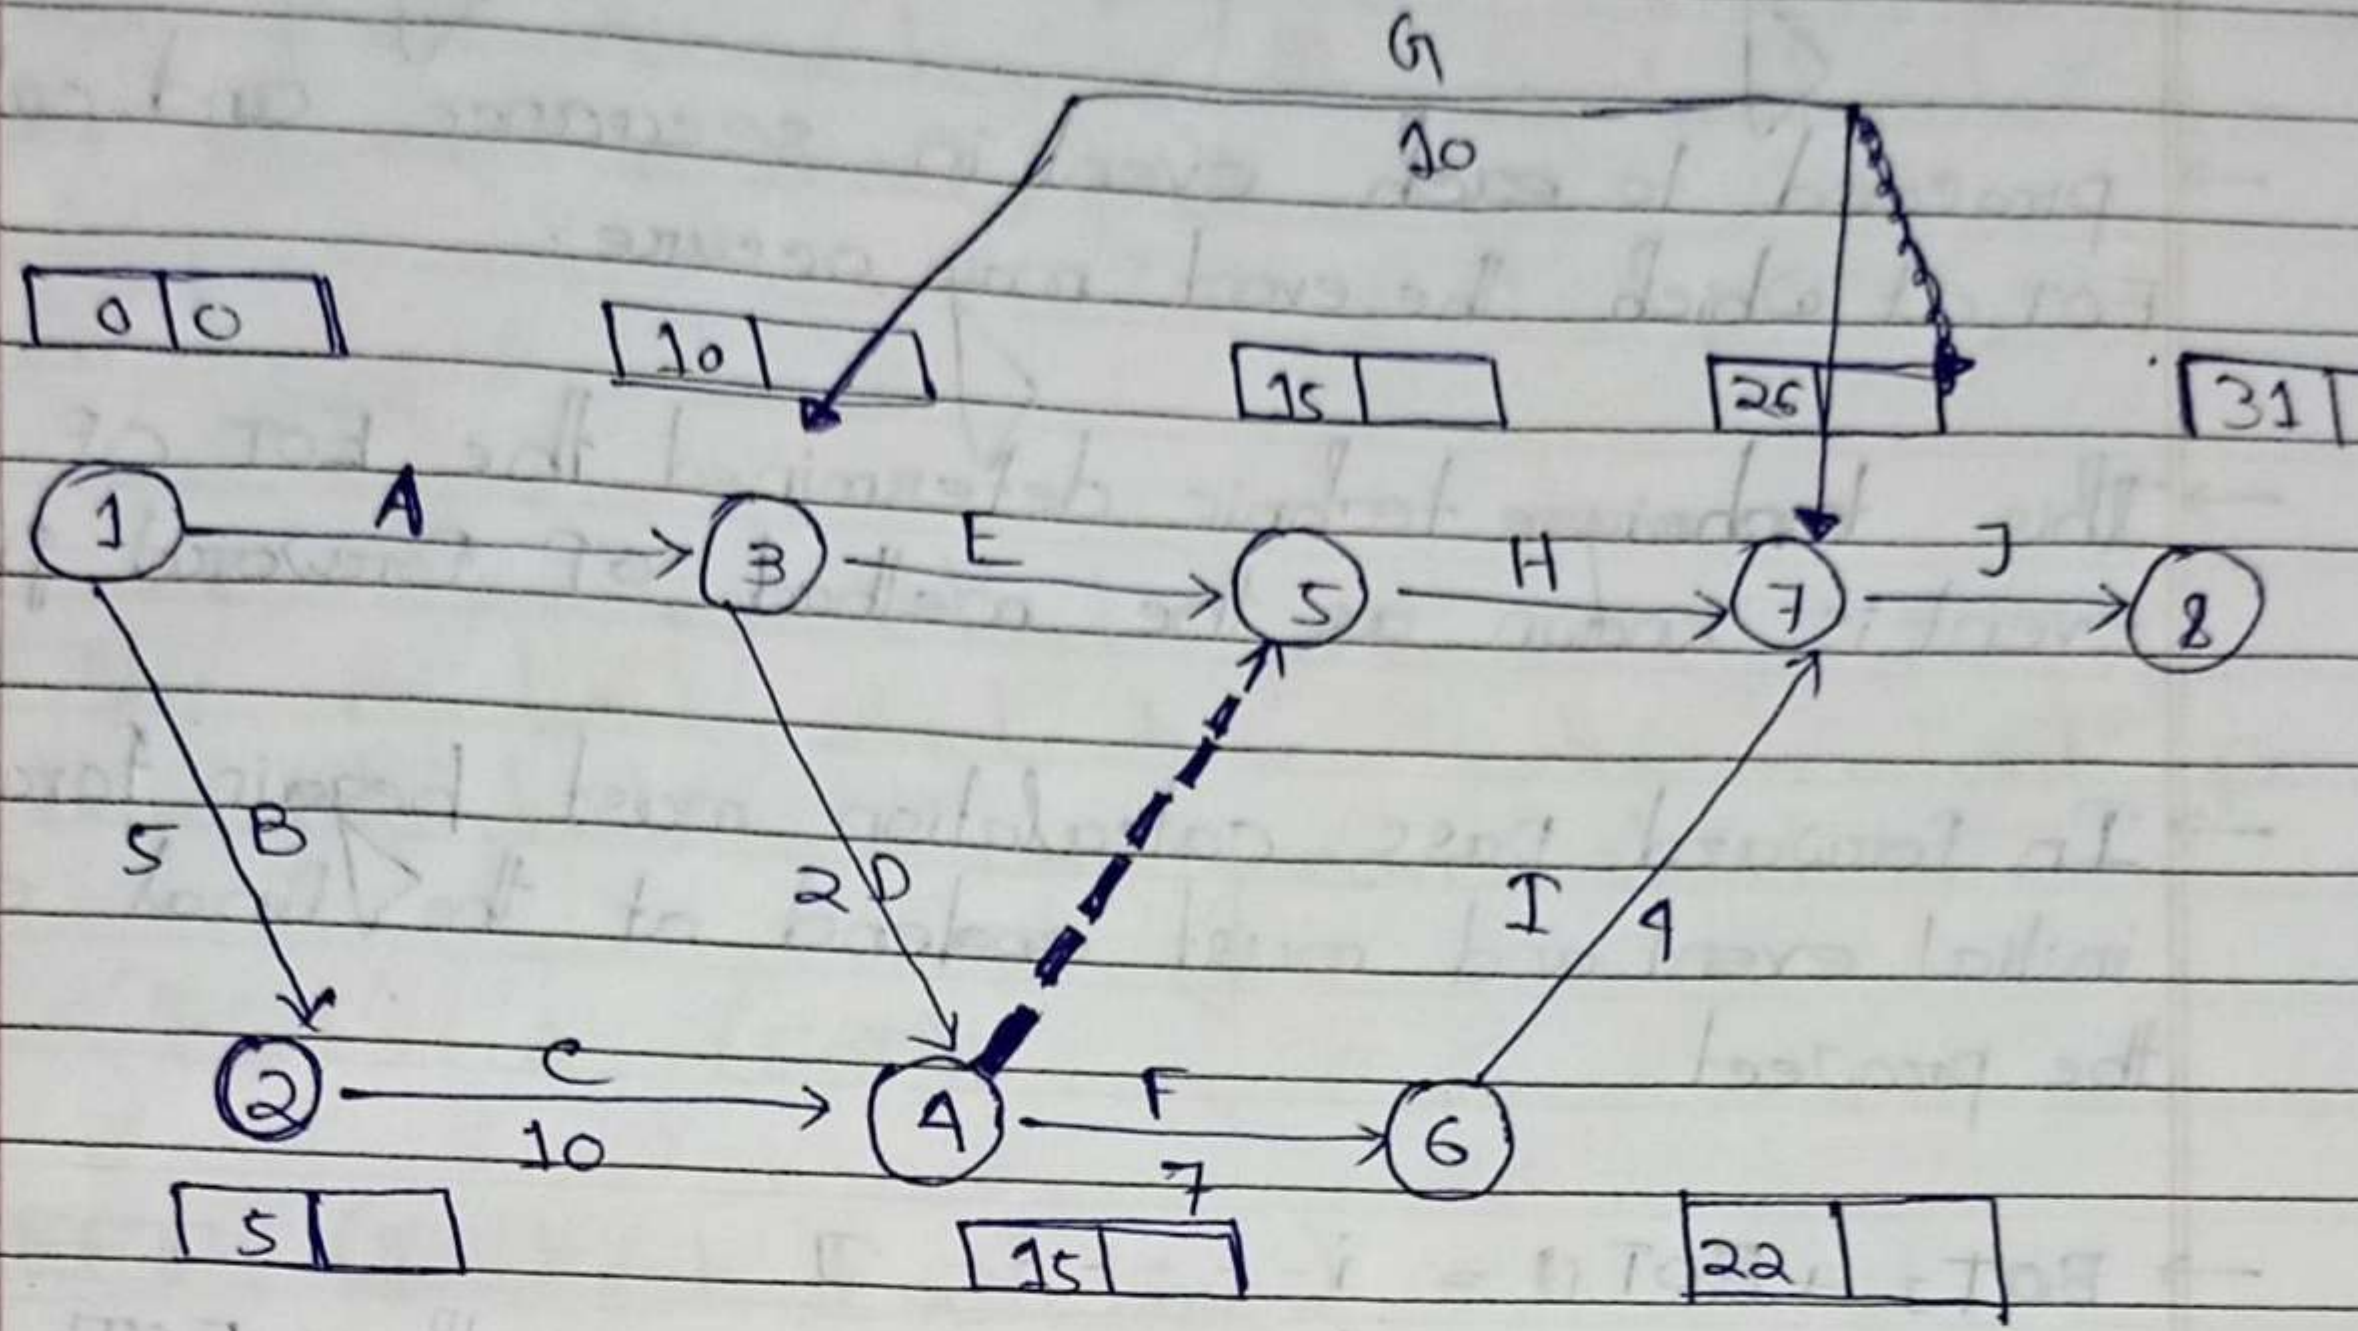 G
10
0 0
10
15
26
31
1 A 3 E 5 H 7 J 8
5 B
2 D
I 4
2 C 4 F 6
10
7
5
15
22